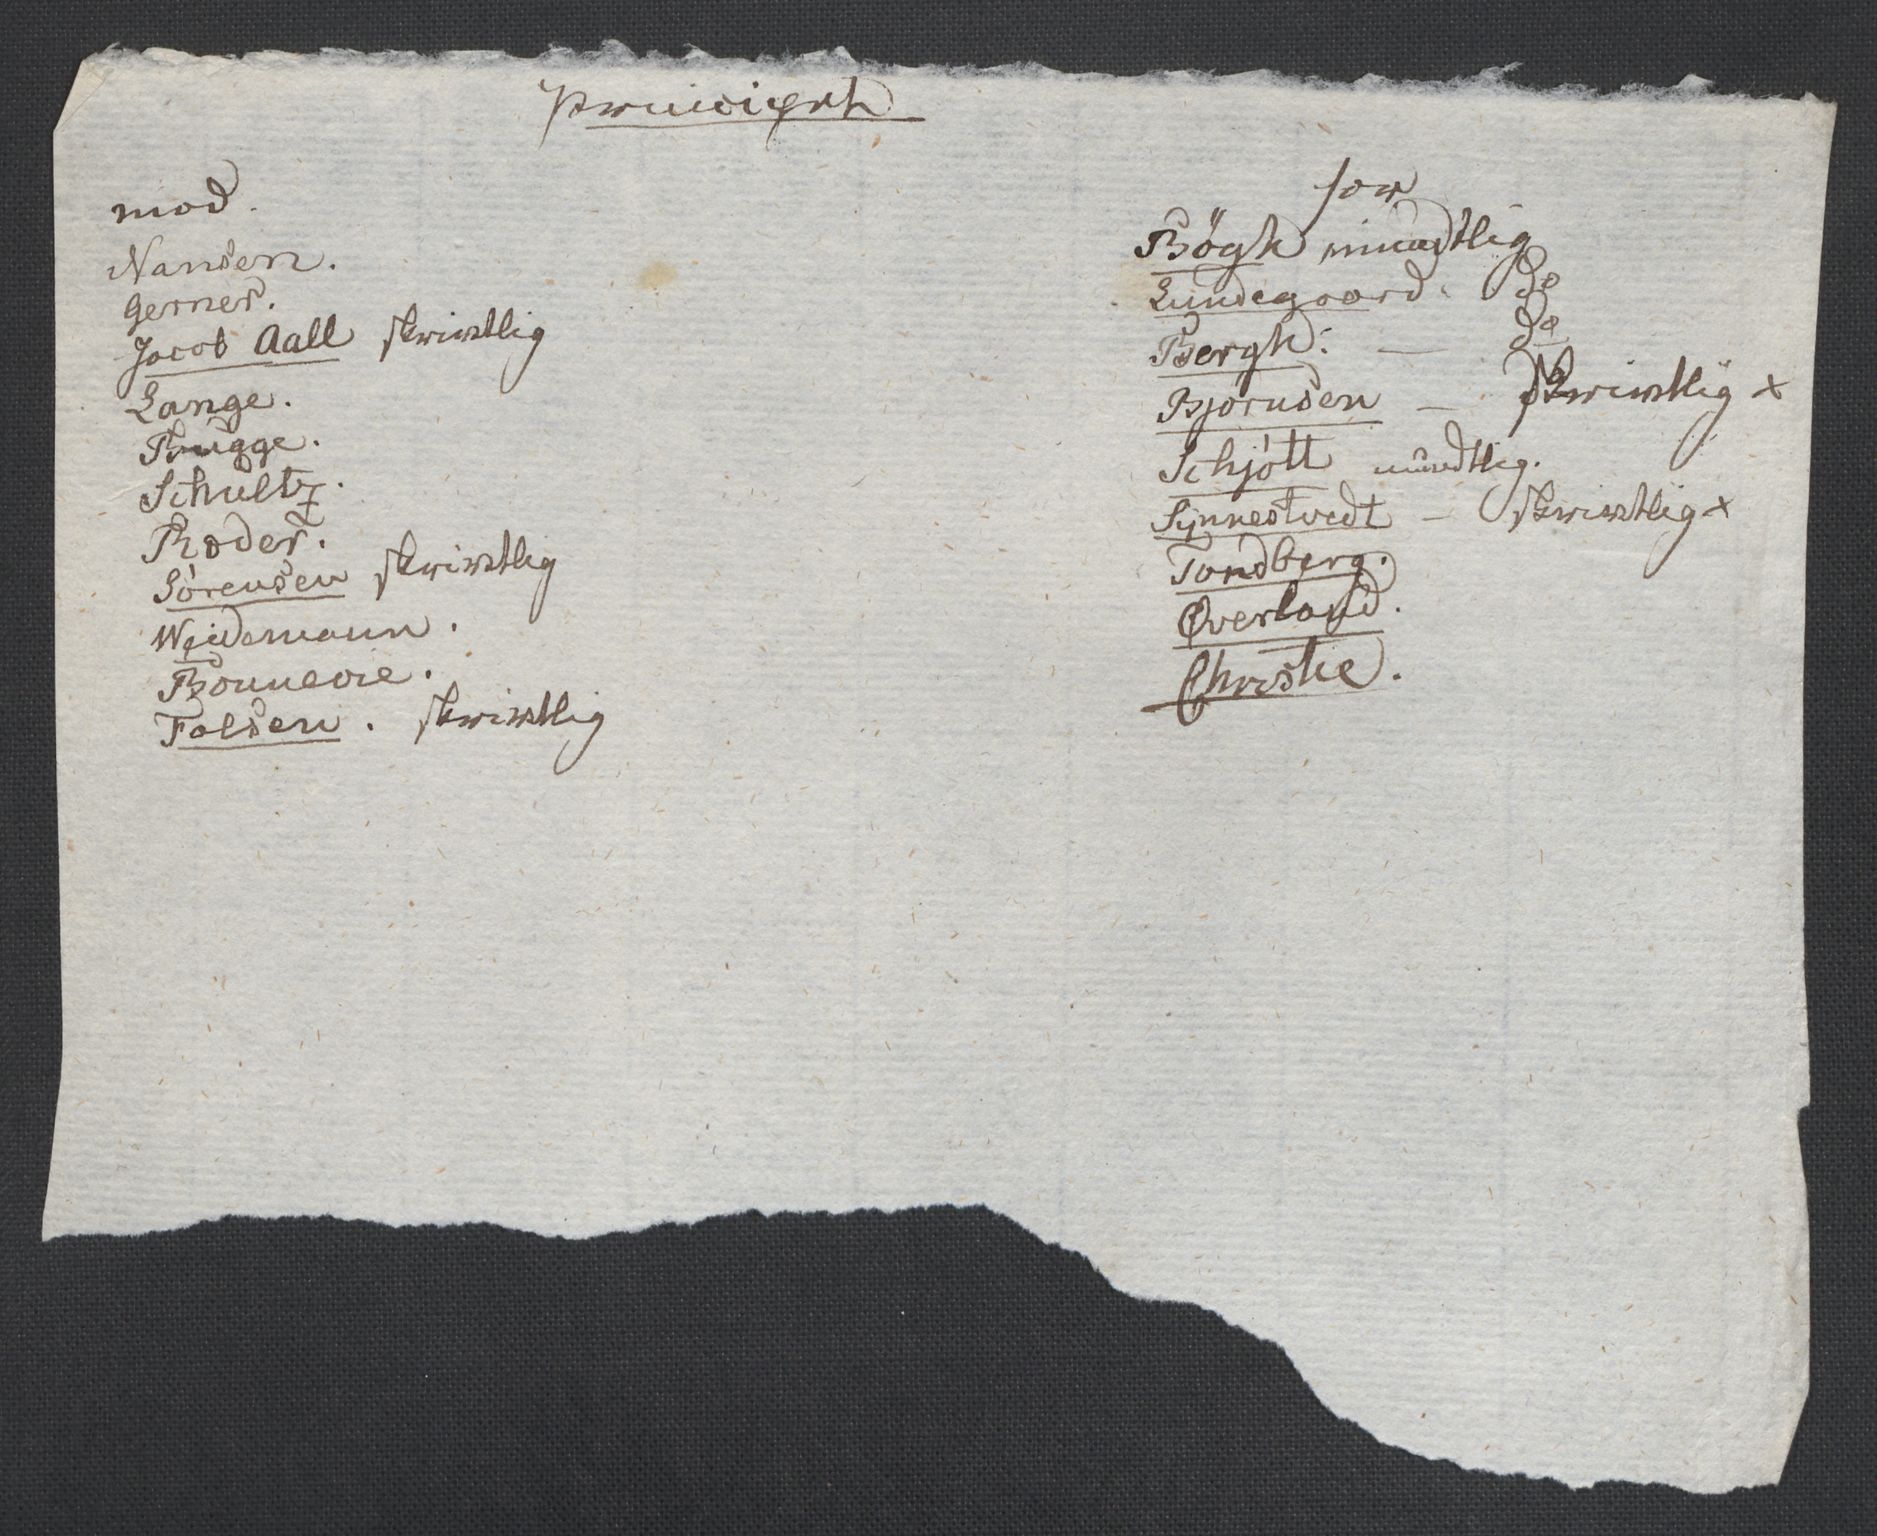 mod.
Nansen.
Gerner.
Jacob Aall skrivtlig
Lange.
Brugge.
Schultz.
Roder.
Sörensen skrivtlig
Weidemann.
Bonnevie.
Falsen. skrivtlig
for
Bøgh mundtlig
Lundegaard. do
Bergh: — do
Bjørnsen — skrivtlig x
Schjøtt mundtlig.
Synnestvedt — skrivtlig x
Tondberg.
Øverland.
Christie.